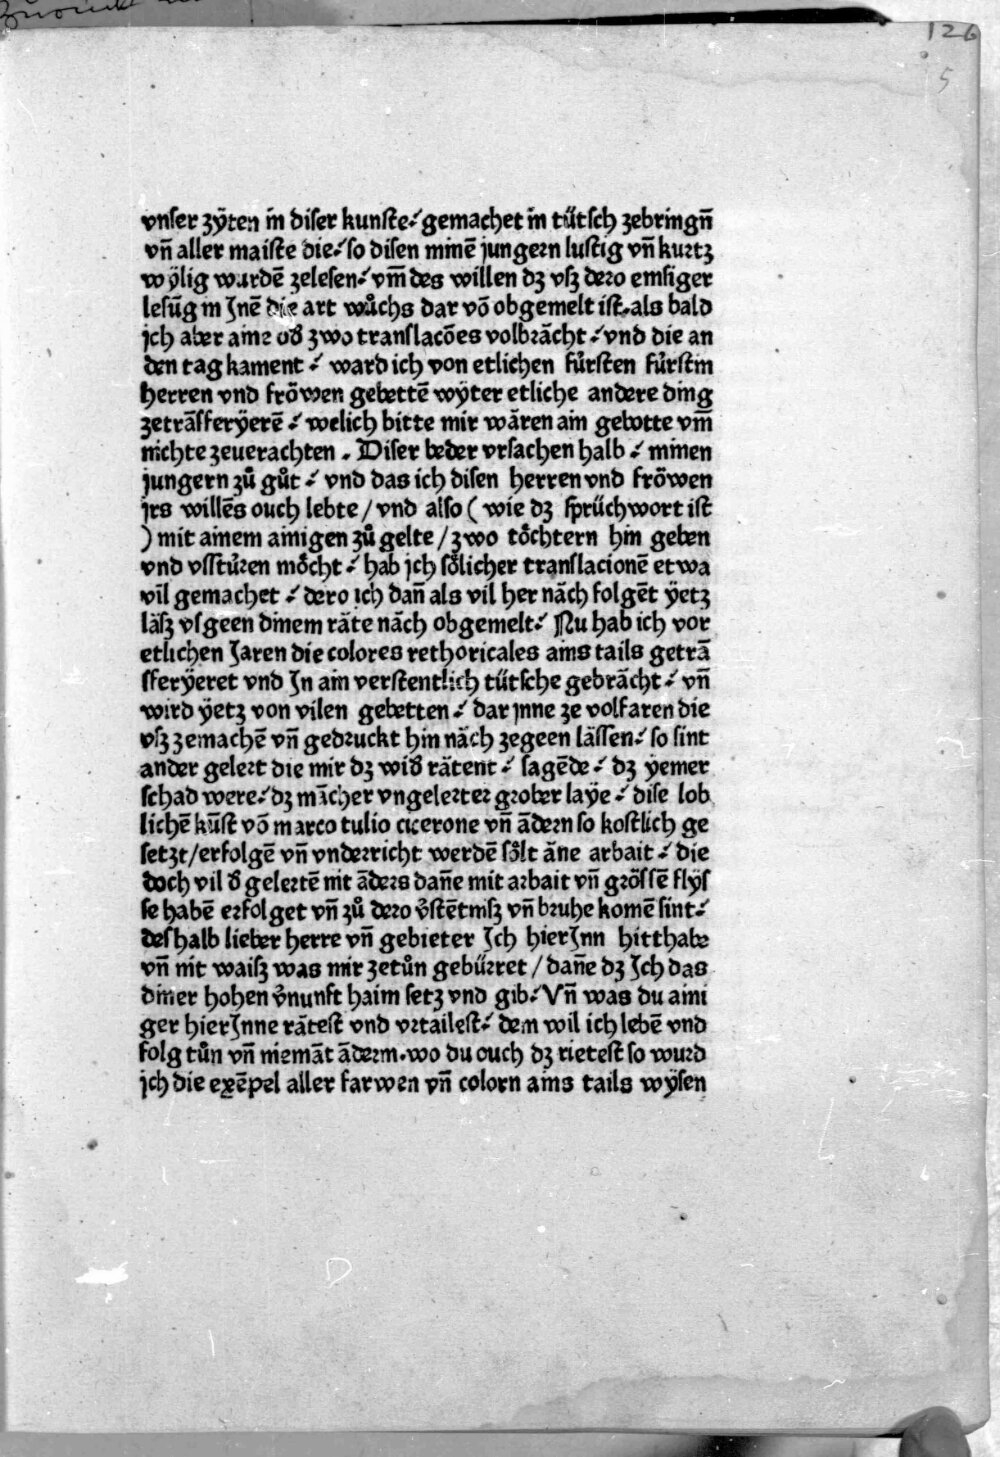 126
5
vnser zÿten in diser kunste⸗ gemachet in tütsch zebringn̄
vn̄ aller maiste die⸗ so disen minē jungern lustig vn̄ kurtz
wÿlig wurdē zelesen⸗ vm̄ des willen dz vsz dero emsiger
lesūg in Jnē die art wůchs dar vō obgemelt ist. als bald
ich aber aine od̕ zwo translacōes volbrācht⸗ vnd die an
den tag kament⸗ ward ich von etlichen fürsten fürstin
herren vnd fröwen gebettē wÿter etliche andere ding
zetrāsferÿerē⸗ welich bitte mir wāren ain gebotte vm̄
nichte zeuerachten. Diser beder vrsachen halb⸗ minen
jungern zů gůt⸗ vnd das ich disen herren vnd fröwen
jrs willēs ouch lebte / vnd also ( wie dz sprüchwort ist
) mit ainem ainigen zů gelte / zwo töchtern hin geben
vnd vsstüren möcht⸗ hab jch sölicher translacionē etwa
vil gemachet⸗ dero ich dan̄ als vil her nāch folgēt ÿetz
lāsz vsgeen dinem rāte nāch obgemelt⸗ Nu hab ich vor
etlichen Jaren die colores rethoricales ains tails getrā
sferÿeret vnd Jn ain verstentlich tütsche gebrācht⸗ vn̄
wird ÿetz von vilen gebetten⸗ dar jnne ze volfaren die
vsz zemachē vn̄ gedruckt hin nāch zegeen lāssen⸗ so sint
ander gelert die mir dz wid̕ rātent⸗ sagēde⸗ dz ÿemer
schad were⸗ dz mācher vngelerter grober laÿe⸗ dise lob
lichē kūst vō marco tulio cicerone vn̄ ādern so kostlich ge
setzt / erfolgē vn̄ vnderricht werdē sölt āne arbait⸗ die
doch vil d̕ gelertē nit āders dan̄e mit arbait vn̄ grössē flÿs
se habē erfolget vn̄ zů dero v̄stētnisz vn̄ bruhe komē sint⸗
deshalb lieber herre vn̄ gebieter Jch hierJnn hitthabe
vn̄ nit waisz was mir zetůn gebürret / dan̄e dz Jch das
diner hohen v̄nunft haim setz vnd gib⸗ Vn̄ was du aini
ger hierJnne rātest vnd vrtailest⸗ dem wil ich lebē vnd
folg tůn vn̄ niemāt āderm. wo du ouch dz rietest so wurd
jch die exēpel aller farwen vn̄ colorn ains tails wÿsen